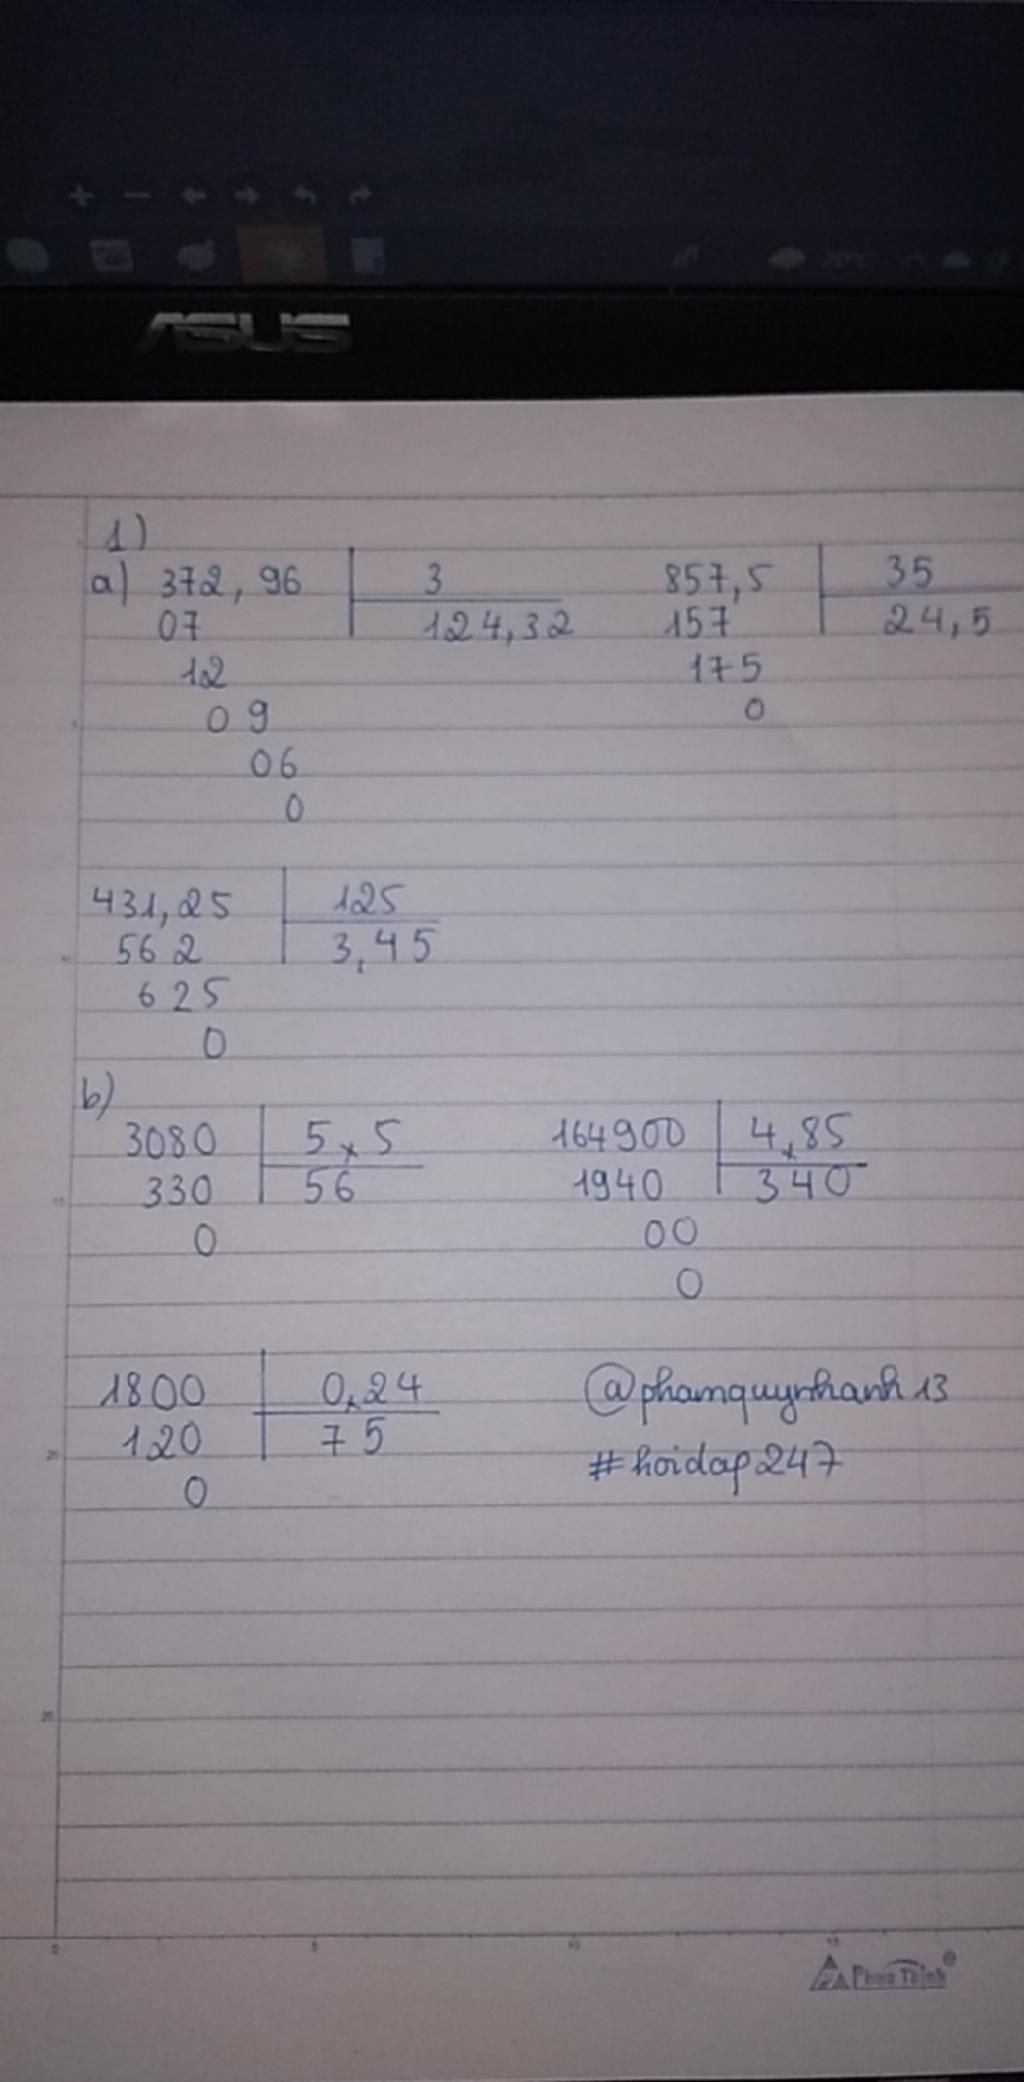 20°C
ASUS
1)
a) 372,96 3 857,5 35
07 124,32 157 24,5
12 175
09 0
06
0
431,25 125
562 3,45
625
0
b)
3080 5,5 164900 4,85
330 56 1940 340
0 00
0
1800 0,24 @phamquynhanh13
120 75 #hoidap247
0
0 5 10 15